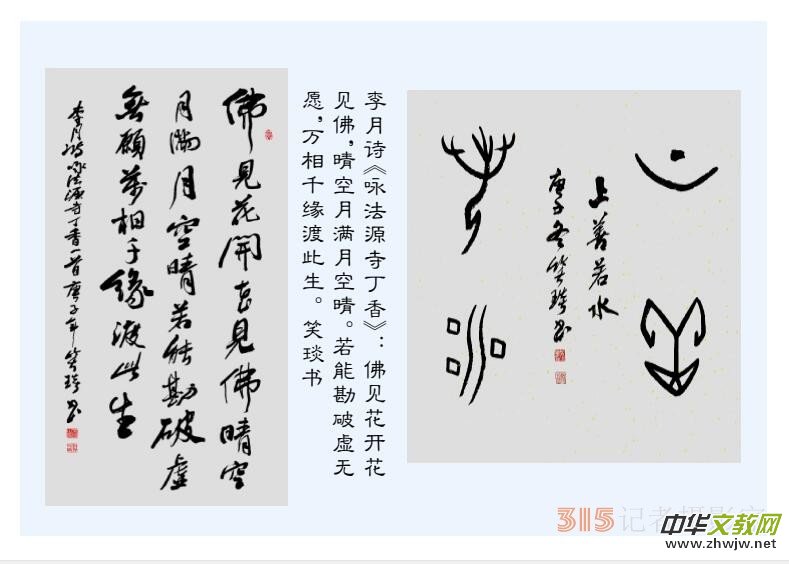 佛見花開花見佛晴空
月滿月空晴若能勘破虛
無願萬相千緣渡此生
李月詩咏法源寺丁香一首庚子年笑琰書
李月诗《咏法源寺丁香》：佛见花开花
见佛，晴空月满月空晴。若能勘破虚无
愿，万相千缘渡此生。 笑琰书
上善
若水
上善若水
庚子冬笑琰書
315记者摄影家
中华文教网
www.zhwjw.net